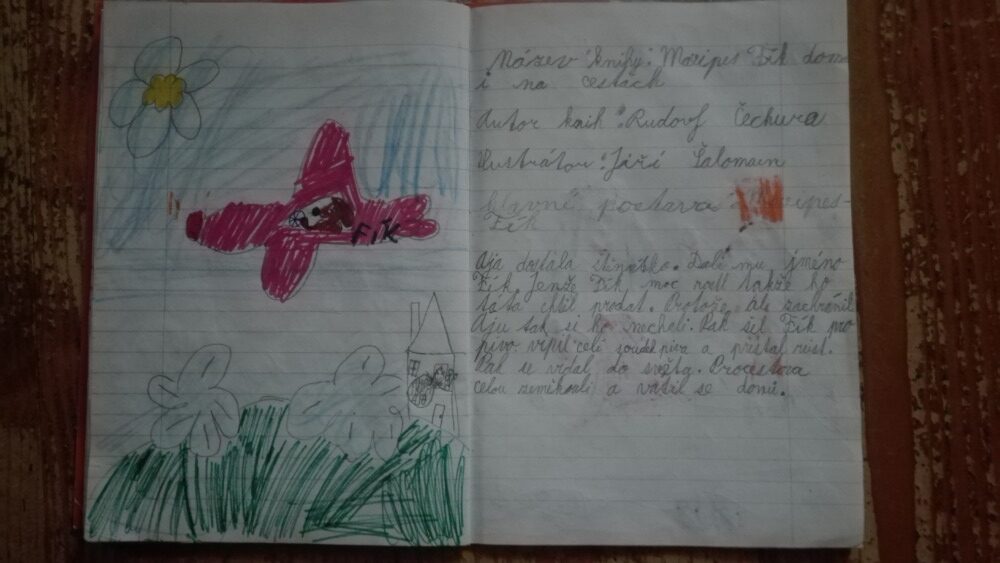 FÍK
Název knihy: Maxipes Fík doma
i na cestách
Autor knih: Rudorf Čechura
Ilustrátor: Jiří Šalomoun
Hlavní postava: Maxipes-
Fík
Ája dostala štěnátko. Dali mu jméno
Fík. Jenže Fík moc rostl takže ho
táta chtěl prodat. Protože ale zachránil
Áju tak si ho nechali. Pak šel Fík pro
pivo. vipil celí soudek piva a přistal růst.
Pak se vidal do světa. Procestova
celou zeměkouli a vrátil se domů.